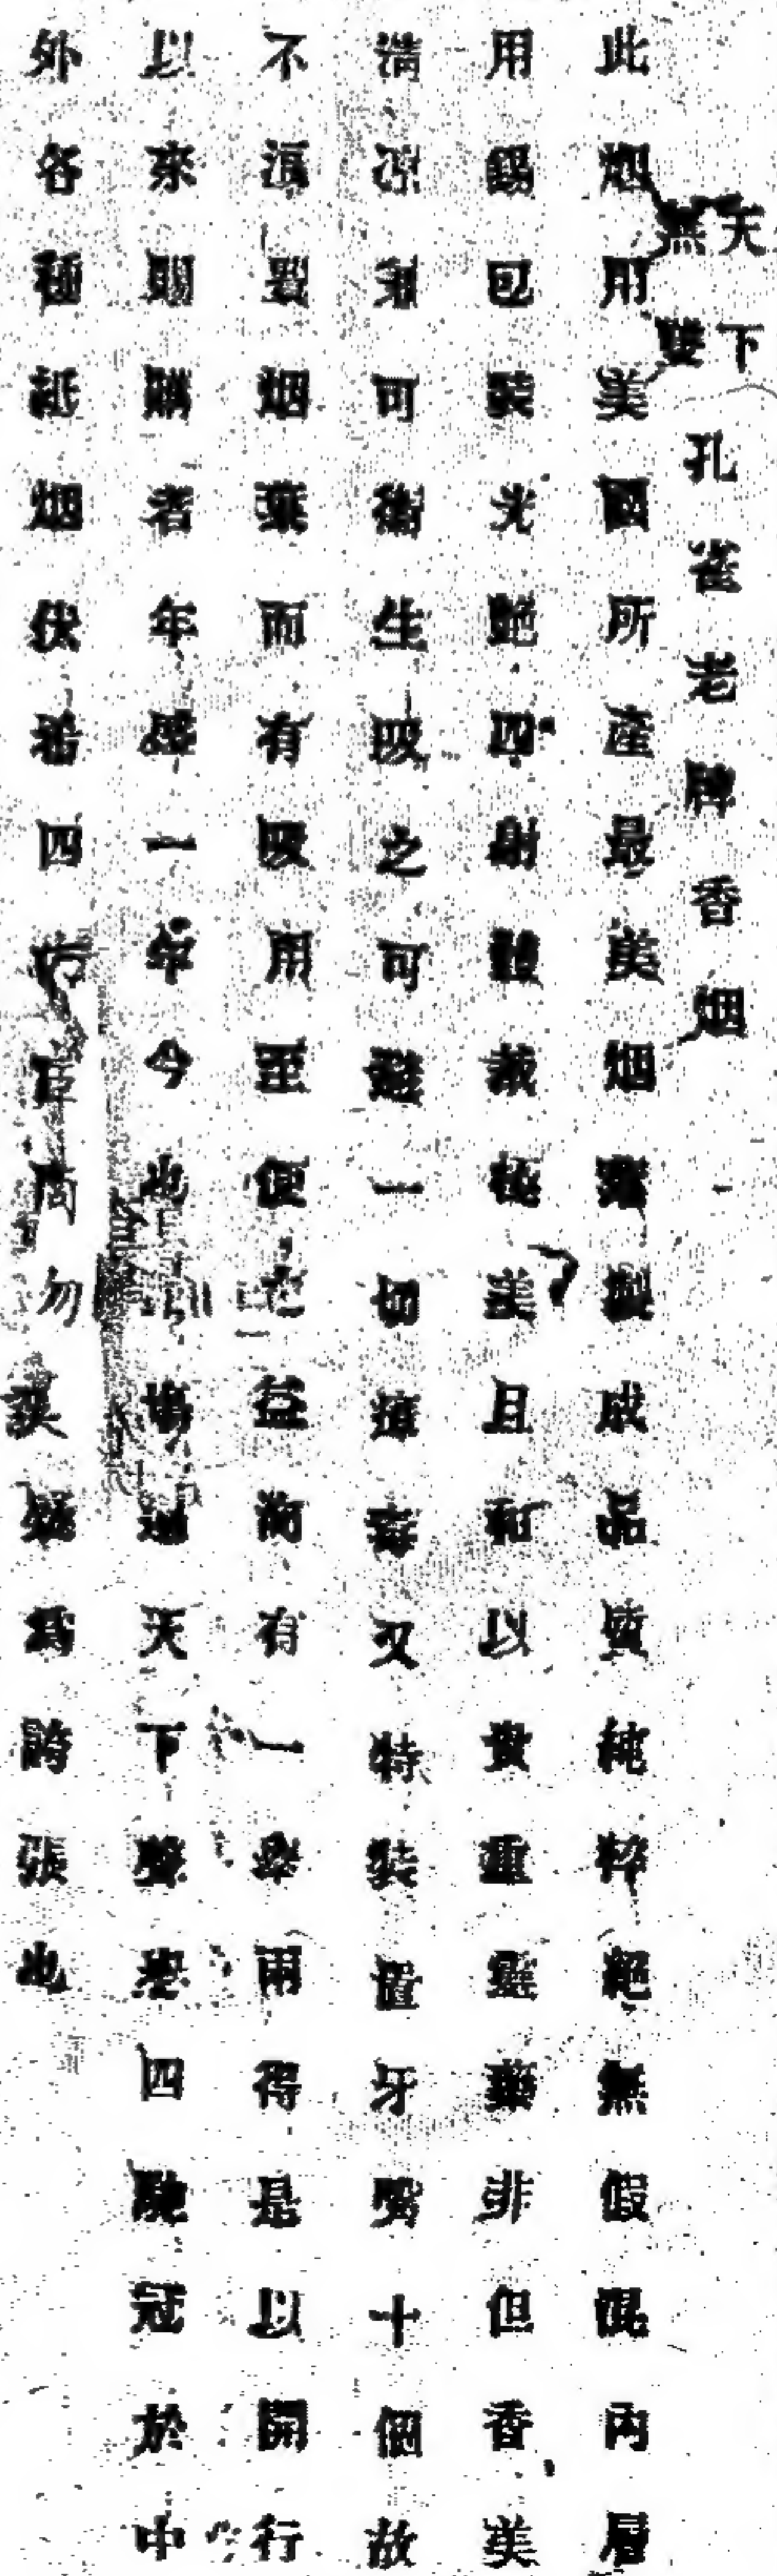 天下無雙孔雀老牌香烟
此烟用美國所產最美烟葉製成品質純粹絕無假混內層
用錫包裝光艷四射體裁極美且和以貴重藥非但香美
清涼和可衛生吸之可避一切瘟毒又特裝置牙嘴十個故
不須買烟葉而有吸用至便之益尚有一舉兩得是以開行
以來賜購者年盛一年今也市場遍天下聲譽四馳冠於中
外各種紙烟伏希四方官商勿誤疑為誇張也